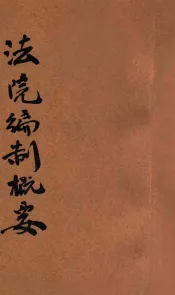 法院編制概要